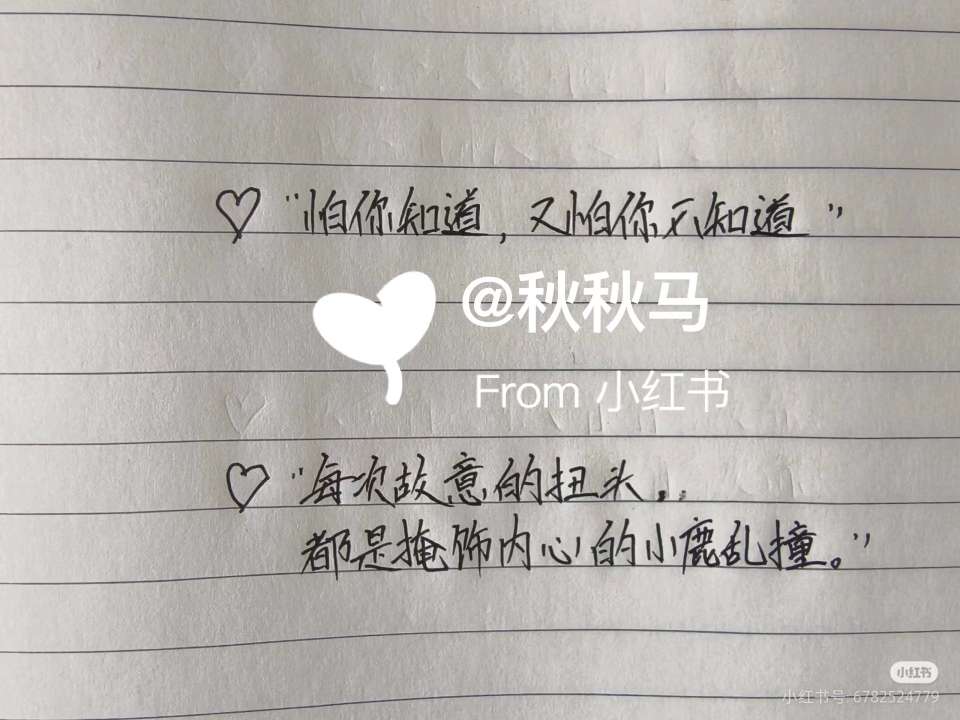 ♡ “怕你知道，又怕你不知道”
@秋秋马
From 小红书
♡ “每次故意的扭头，
都是掩饰内心的小鹿乱撞。”
小红书
小红书号: 6782524779